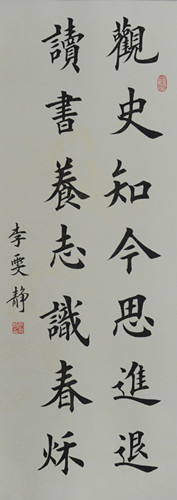 觀史知今思進退
讀書養志識春秌
李雯静